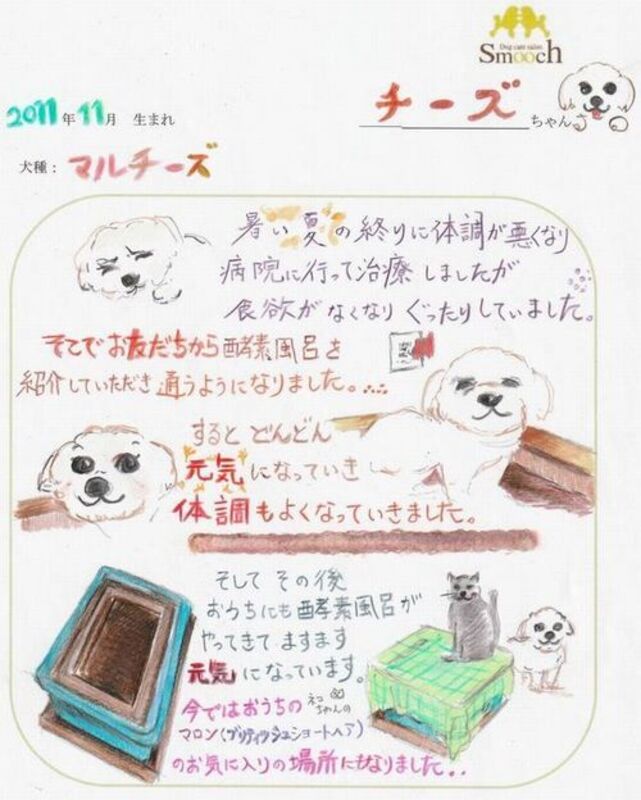 Dog care salon
Smooch
チーズ ちゃん
2011年11月 生まれ
犬種： マルチーズ
暑い夏の終りに体調が悪くなり
病院に行って治療しましたが
食欲がなくなりぐったりしていました。
そこでお友だちから酵素風呂を
紹介していただき通うようになりました。
するとどんどん
元気になっていき
体調もよくなっていきました。
そしてその後
おうちにも酵素風呂が
やってきてますます
元気になっています。
今ではおうちのネコちゃんの
マロン(ブリティッシュショートヘア)
のお気に入りの場所にもなりました..